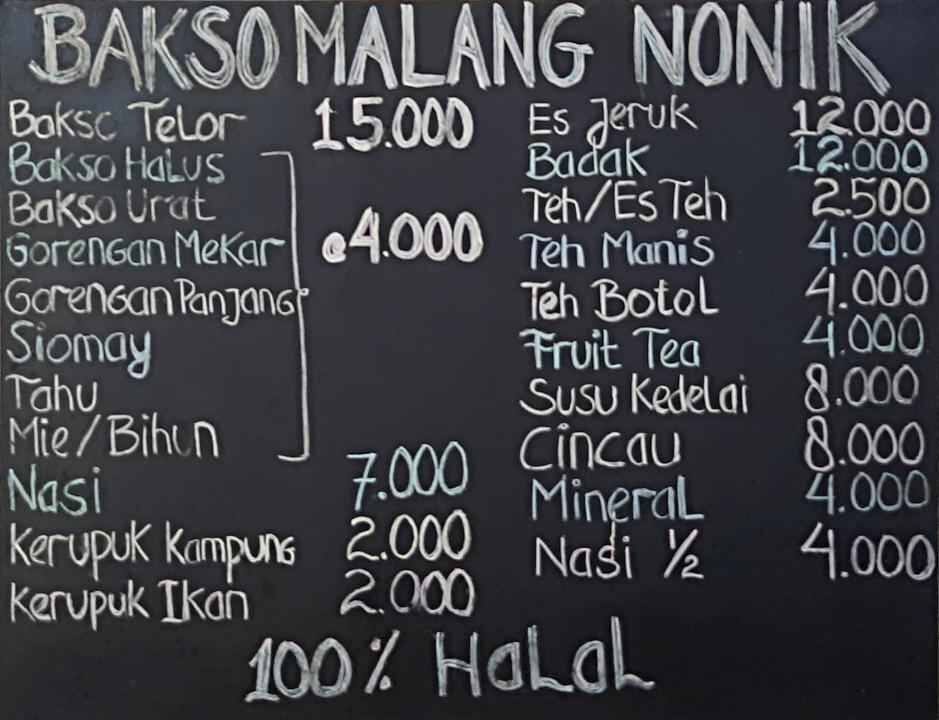 BAKSO MALANG NONIK
Bakso Telor 15.000
Bakso Halus
Bakso Urat
Gorengan Mekar @4.000
Gorengan Panjang
Siomay
Tahu
Mie/Bihun
Nasi 7.000
Kerupuk Kampung 2.000
Kerupuk Ikan 2.000
Es Jeruk 12.000
Badak 12.000
Teh/Es Teh 2.500
Teh Manis 4.000
Teh Botol 4.000
Fruit Tea 4.000
Susu Kedelai 8.000
Cincau 8.000
Mineral 4.000
Nasi ½ 4.000
100% Halal